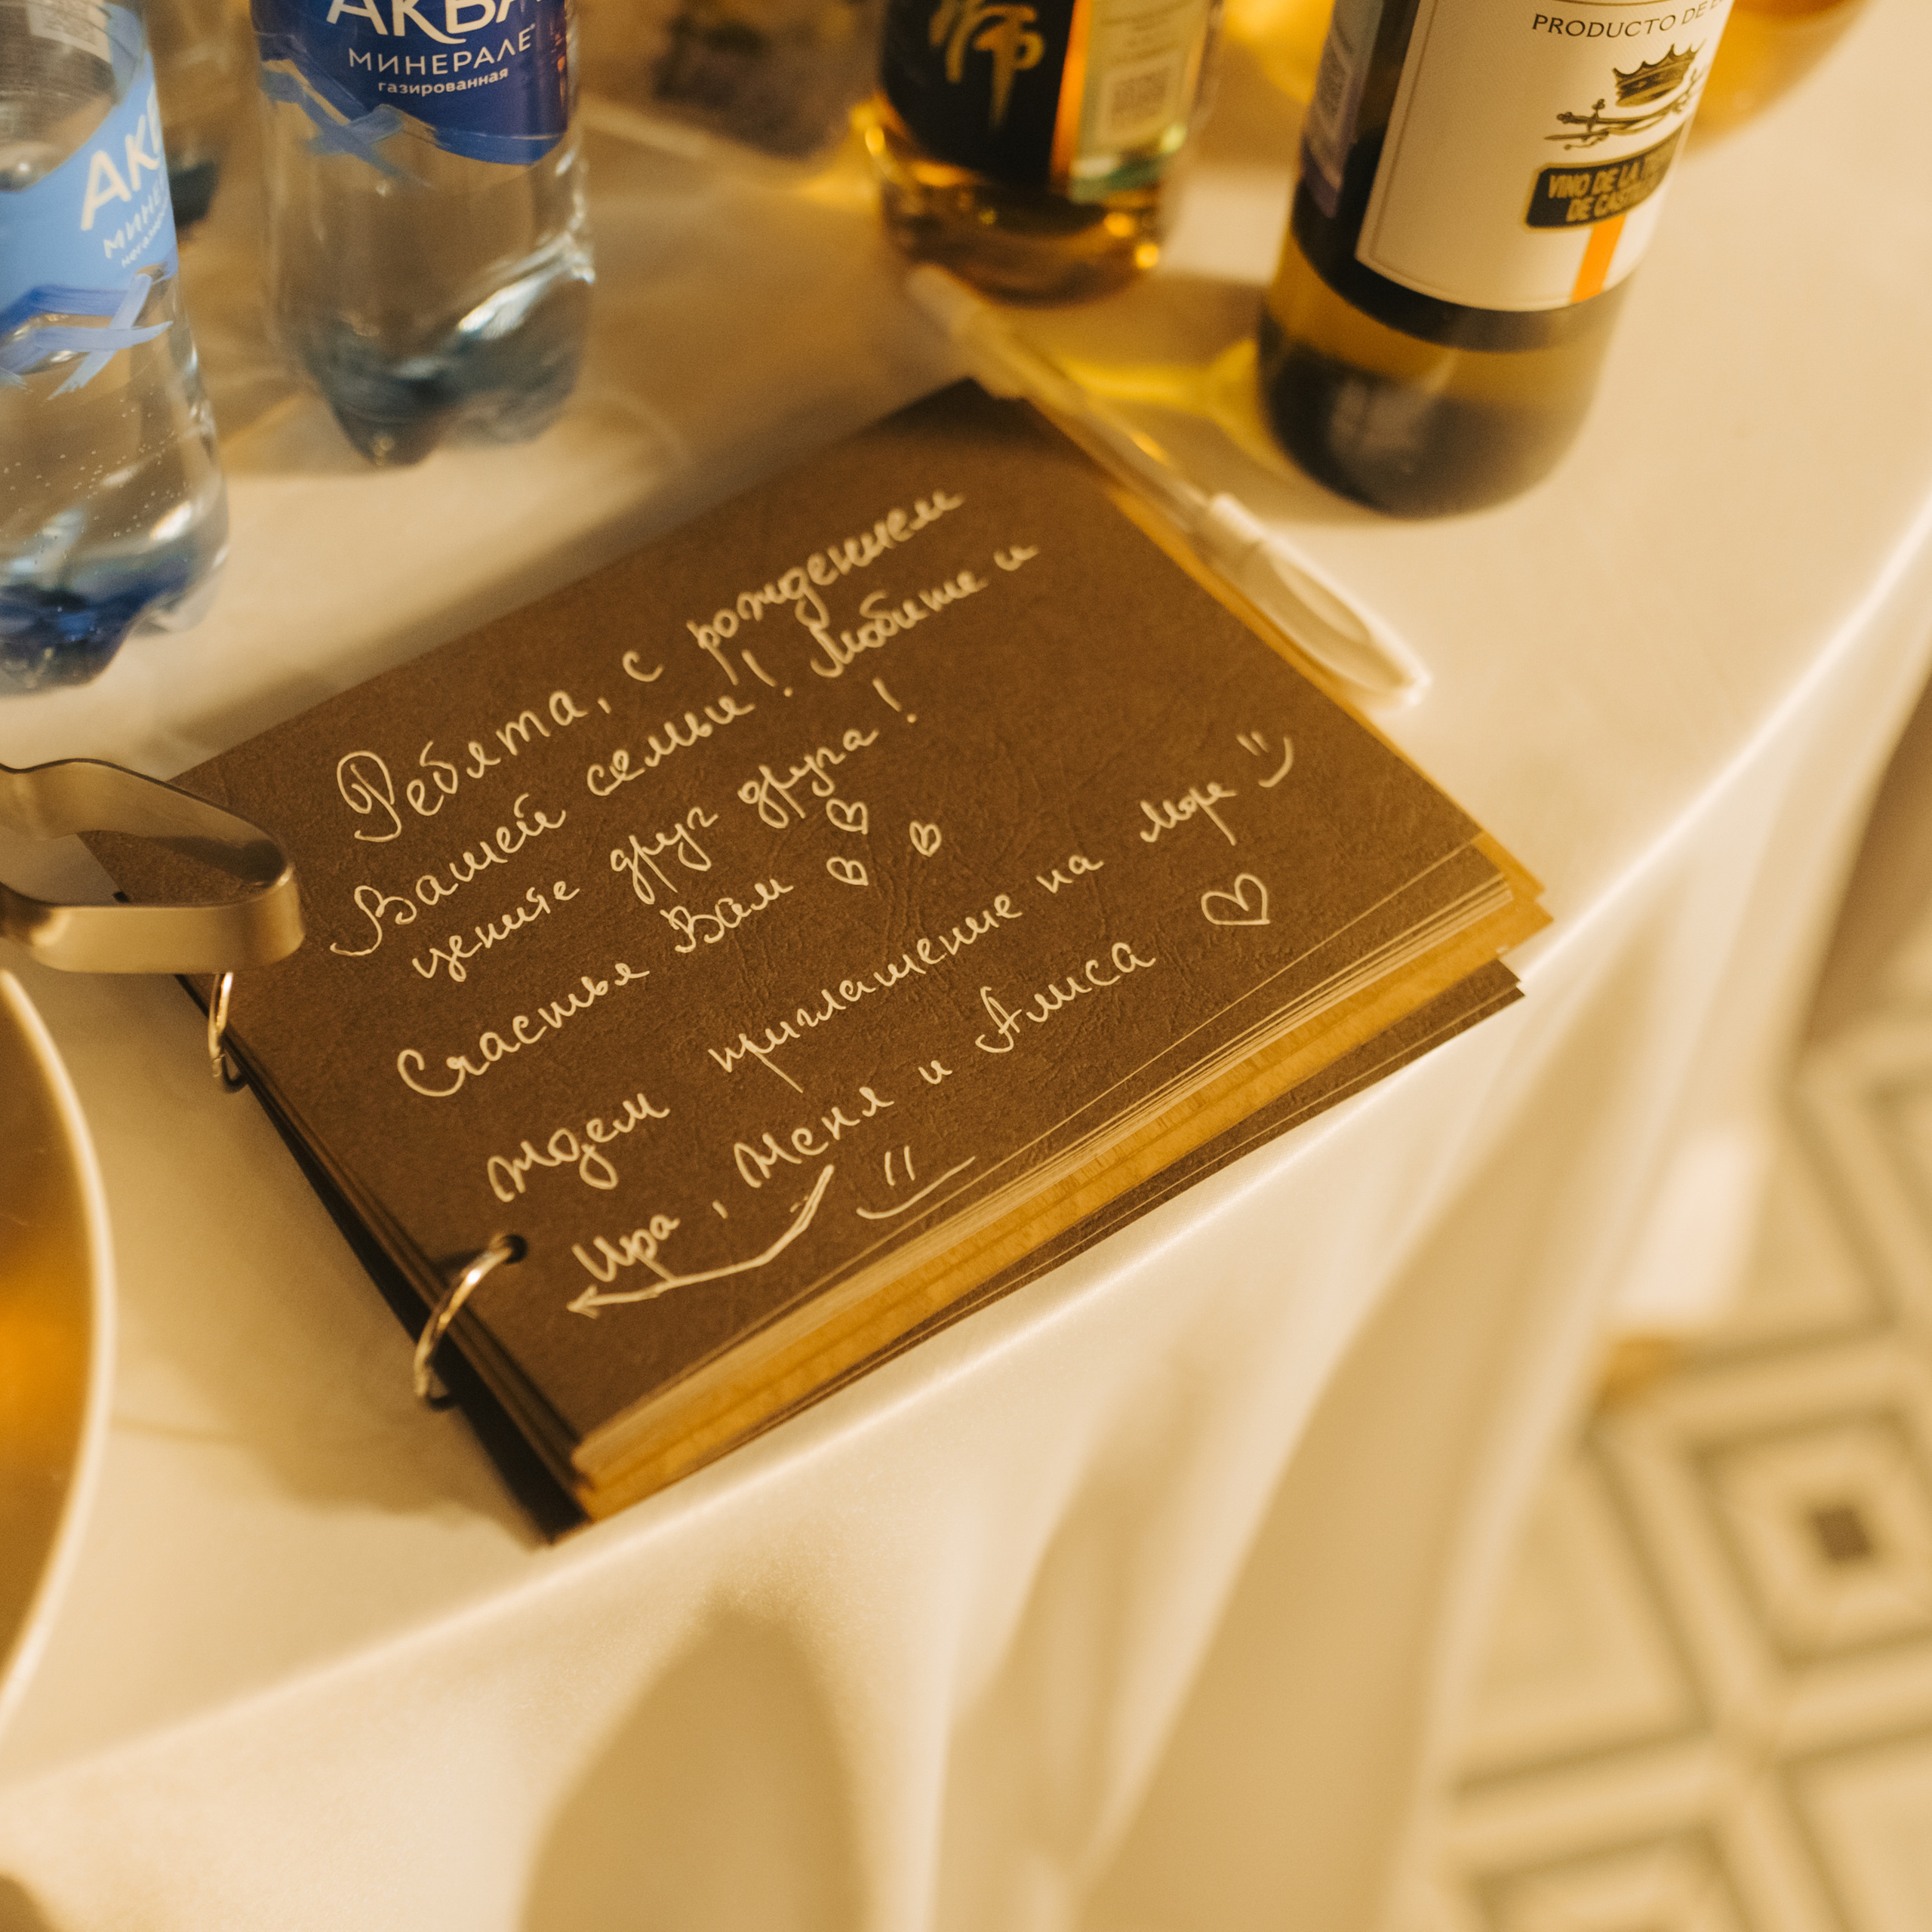 АКВА
МИНЕРАЛЕ
газированная
МИНЕ
PRODUCTO DE
VINO DE LA
DE CAST
Ребята, с рождением
Вашей семьи! Любите и
цените друг друга!
Счастья Вам
ждем приглашение на море
Ира, Женя и Алиса